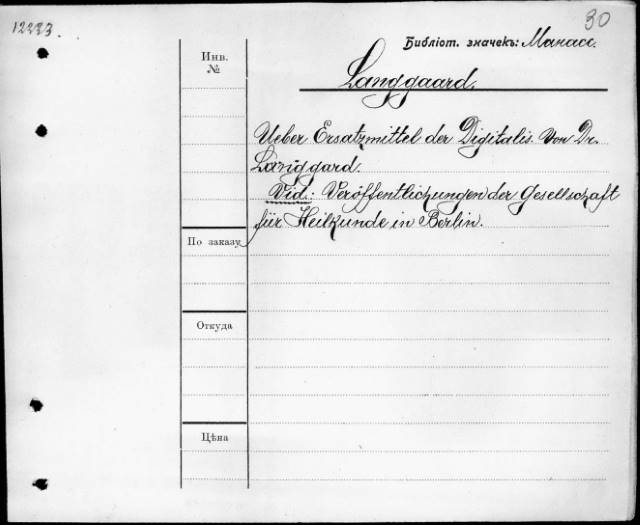 12233.
30
Библіот. значекъ: Манасс.
Инв.
№
Langgaard.
Ueber Ersatzmittel der Digitalis. Von Dr.
Langgard.
Vid.: Veröffentlichungen der Gesellschaft
für Heilkunde in Berlin.
По заказу
Откуда
Цѣна